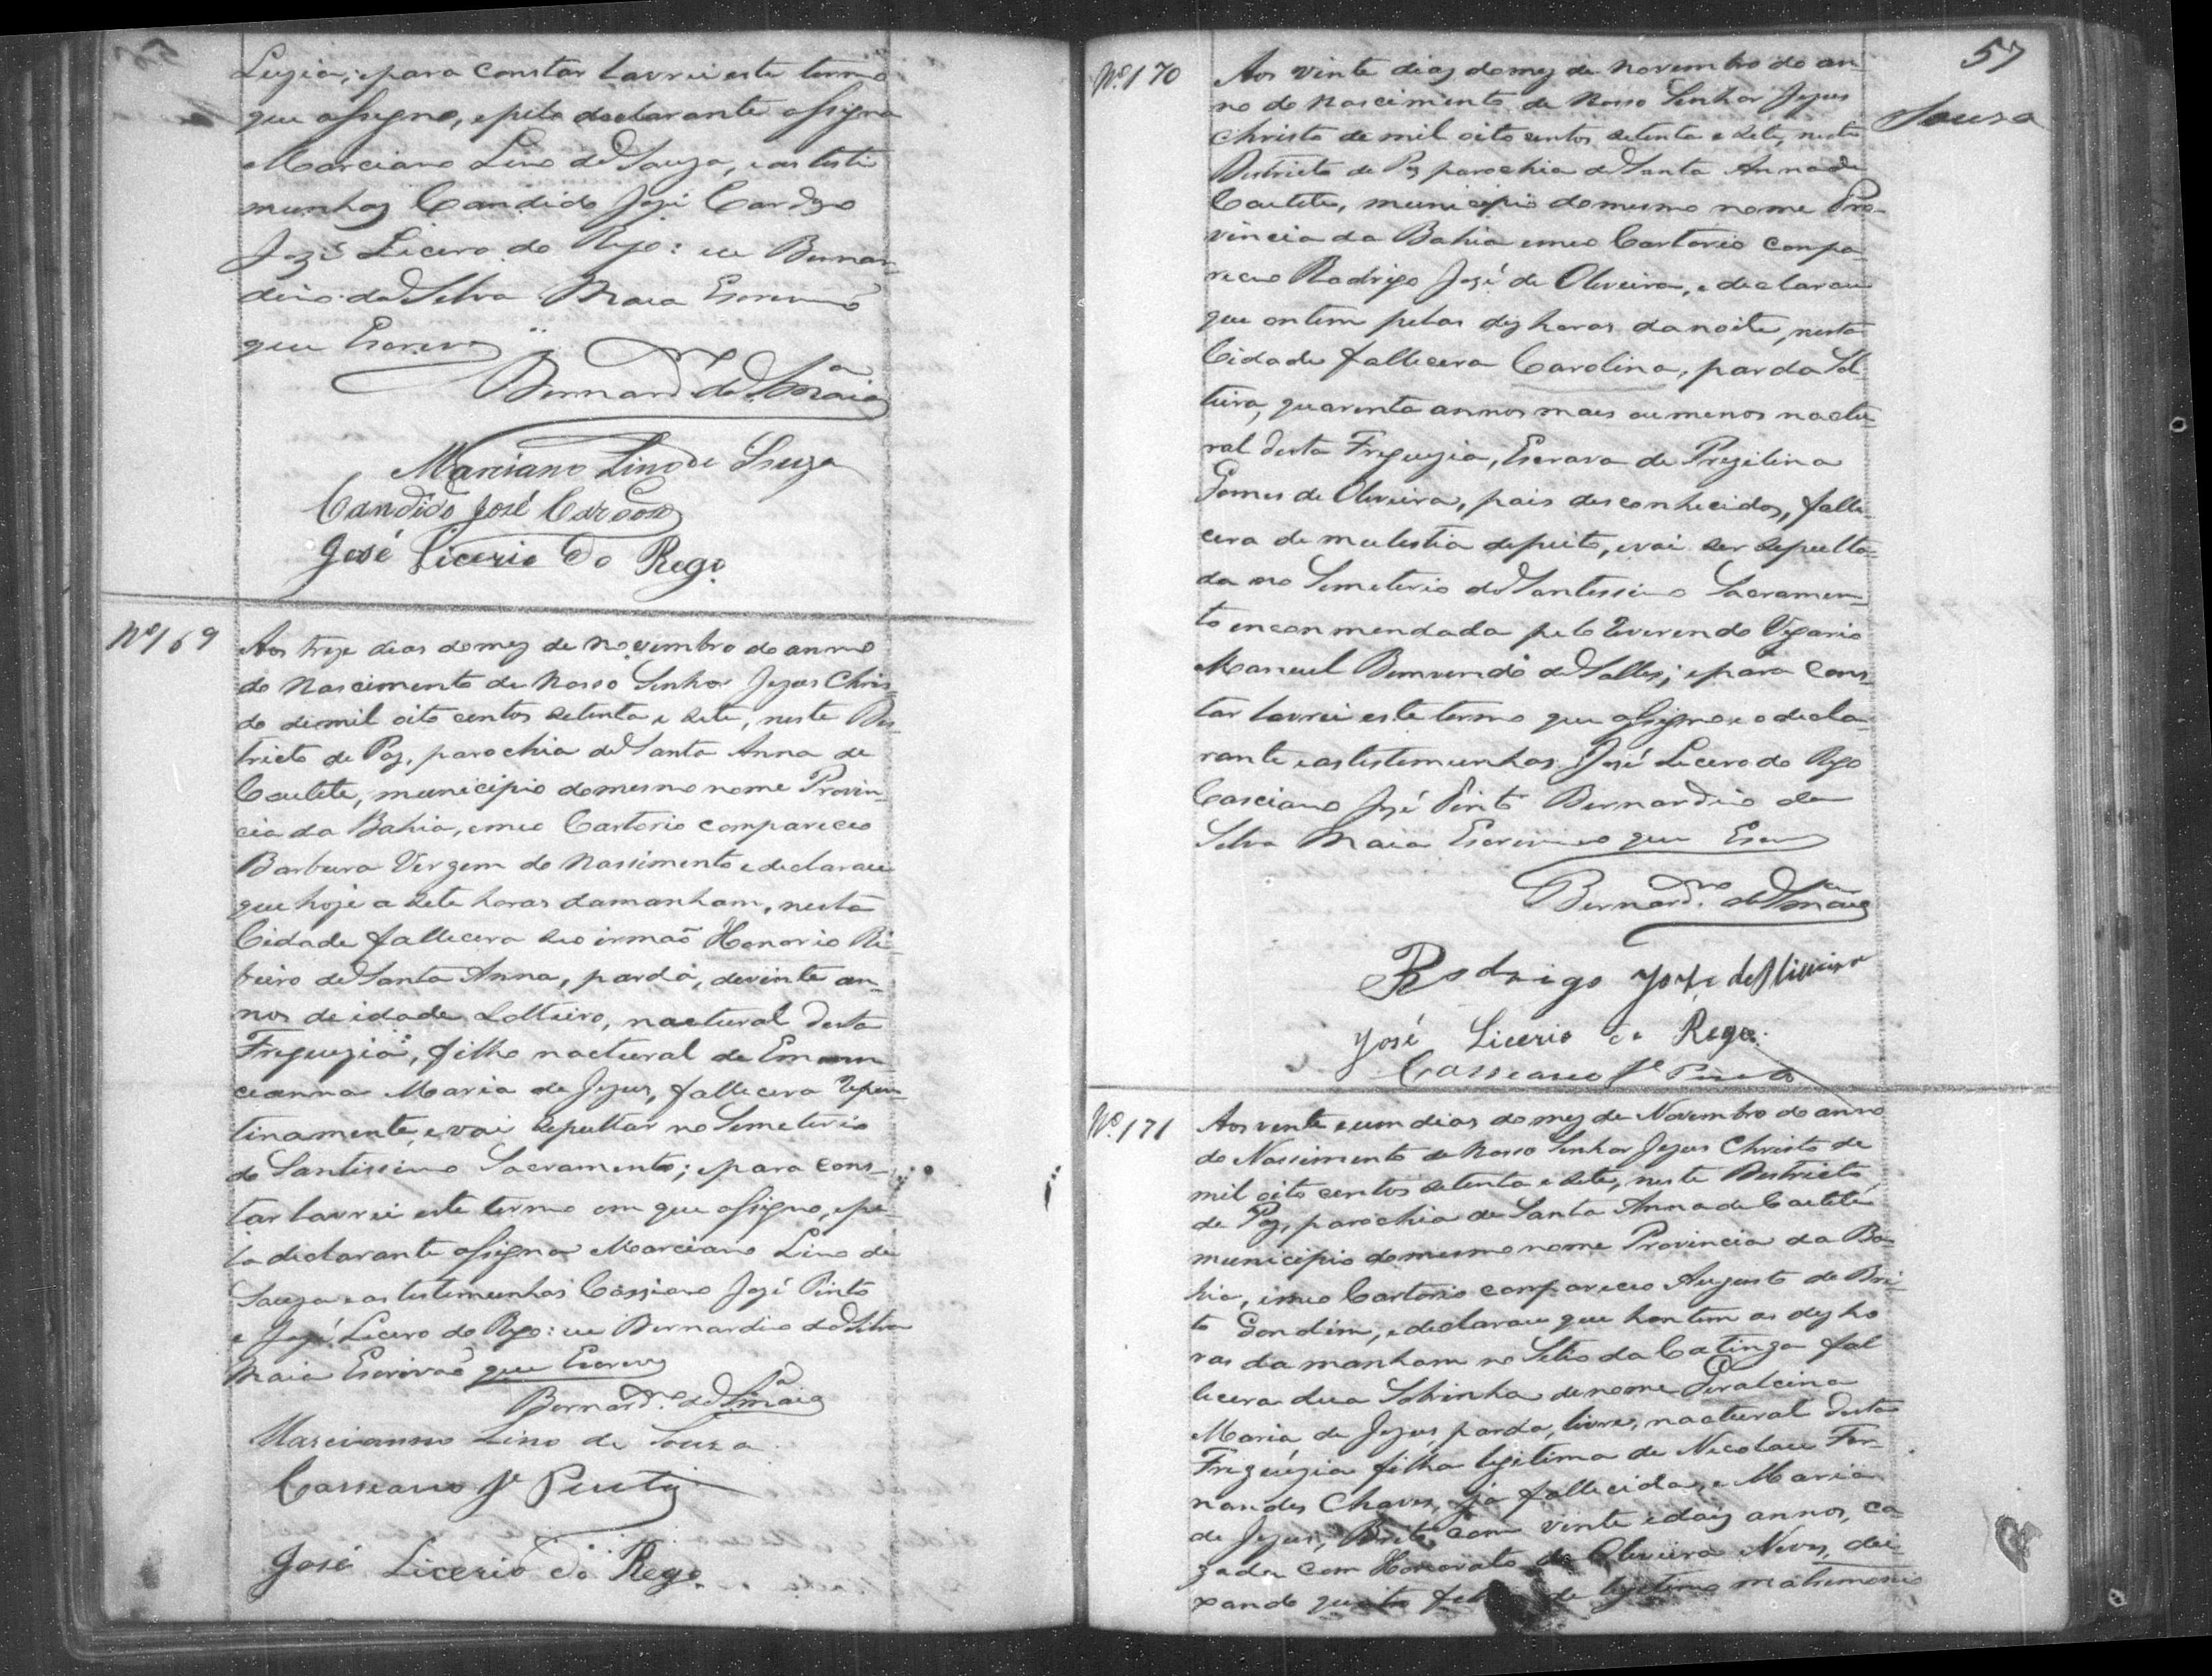 Luzia; e para constar lavrei este termo
que assigno, e pela declarante assigna
Marciano Lino de Souza, e as teste
munhas Candido José Cardozo
José Licero do Rego: eu Bernar
dino da Silva Maia Escrivaõ
que Escrevy
Bernardno da S.a Maia
Marciano Lino de Souza
Candido José Cardoso
José Licerio do Rego.
Nº 169
Aos treze dias do mez de novembro do anno
do Nascimento de Nosso Senhor Jezus Chris
do de mil oito centos setenta e sete, neste Dis
tricto de Paz, parochia de Santa Anna de
Caetete, municipio do mesmo nome Provin
cia da Bahia, em meo Cartorio compareceo
Barbara Vergem do Nassimento e declarau
que hoje a sete horas da manham, nesta
Cidade fallecera seo irmaõ Honorio Ri
beiro de Santa Anna, pardo, de vinte an
nos de idade, solteiro, nactural desta
Freguezia, filho nactural de Emeren
cianna Maria de Jezus, fallecera repen
tinamente, e vai sepultar no Semeterio
do Santissimo Sacramento; e para cons
tar lavrei este termo em que assigno, e pe
la declarante assigna Marciano Lino de
Souza e as testemunhas Cassiano José Pinto
e José Licero do Rego: eu Bernardino da Silva
Maia Escrivaõ que Escrevy
Bernardno da S.a Maia
Marcianno Lino de Souza
Casseano Je Pinto
José Licerio do Rego.
57
Souza
Nº 170
Aos vinte dias do mez de novembro do an
no do nascimento de Nosso Senhor Jezus
Christo de mil oito centos setenta e sete, neste
Districto de Paz parochia de Santa Anna de
Caetete, municipio do mesmo nome Pro
vincia da Bahia em meo Cartorio compa
receo Rodrigo José de Oliveira, e declarau
que ontem pelas dez horas da noite, nesta
Cidade fallecera Carolina, parda Sol
teira, quarenta annos mais ou menos nactu
ral desta Freguezia, Escrava de Prezilina
Gomes de Oliveira, pais desconhecidos, falle
cera de mulestia de peito, e vai ser sepulta
da no Semeterio do Santissimo Sacramen
to enconmendada pelo Reverendo Vigario
Manuel Bemvendo de Salles; e para Cons
tar lavrei este termo que assigno e o decla
rante e as testemunhas José Licero do Rego
Casciano José Pinto Bernardino da
Silva Maia Escrivaõ que Escr
Bernardno da S.a Maia
Rodrigo José de Oliveira
José Licerio do Rego.
Casseano Je Pinto
Nº 171
Aos vente e um dias do mez de Novembro do anno
do Nassimento de Nosso Senhor Jezus Christo de
mil oito centos setenta e sete, neste Districto
de Paz, parochia de Santa Anna de Caetete
municipio do mesmo nome Provincia da Ba
hia, em meo Cartorio compareceo Augusto de Bri
to Gondim, e declarau que hontem as dez ho
ras da manham no Sitio da Catinga fal
lecera sua Sobrinha de nome Peralcina
Maria de Jezus, parda, livre, nactural desta
Freguezia filha legitima de Nicolau Fer
nandes Chaves, ja fallecido, e Maria
de Jezus, Brito com vinte e dois annos, ca
zada com Honorato de Oliveira Neves, dei
xando quatro de legitimo matrimonio